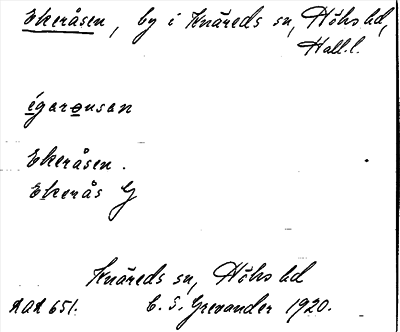 Ekeråsen, by i Knäreds sn, Höks hd,
Hall.l.
égarọnsan
Ekeråsen.
Ekerås G
Knäreds sn, Höks hd
AAA 651. C. S. Grevander 1920.